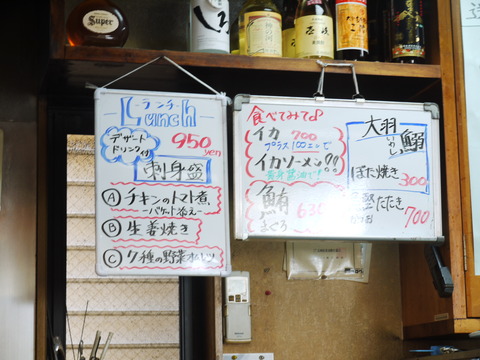 Super
ランチ
Lunch
デザート
ドリンク付
950
yen
刺身盛
Ⓐ チキンのトマト煮
ーバケット添えー
Ⓑ 生姜焼き
Ⓒ 7種の野菜
食べてみて
イカ 700
プラス100ェンで
イカソーメン
鮪 630
まぐろ
大羽
いわし
鰯
ほた焼き
300
たたき
700